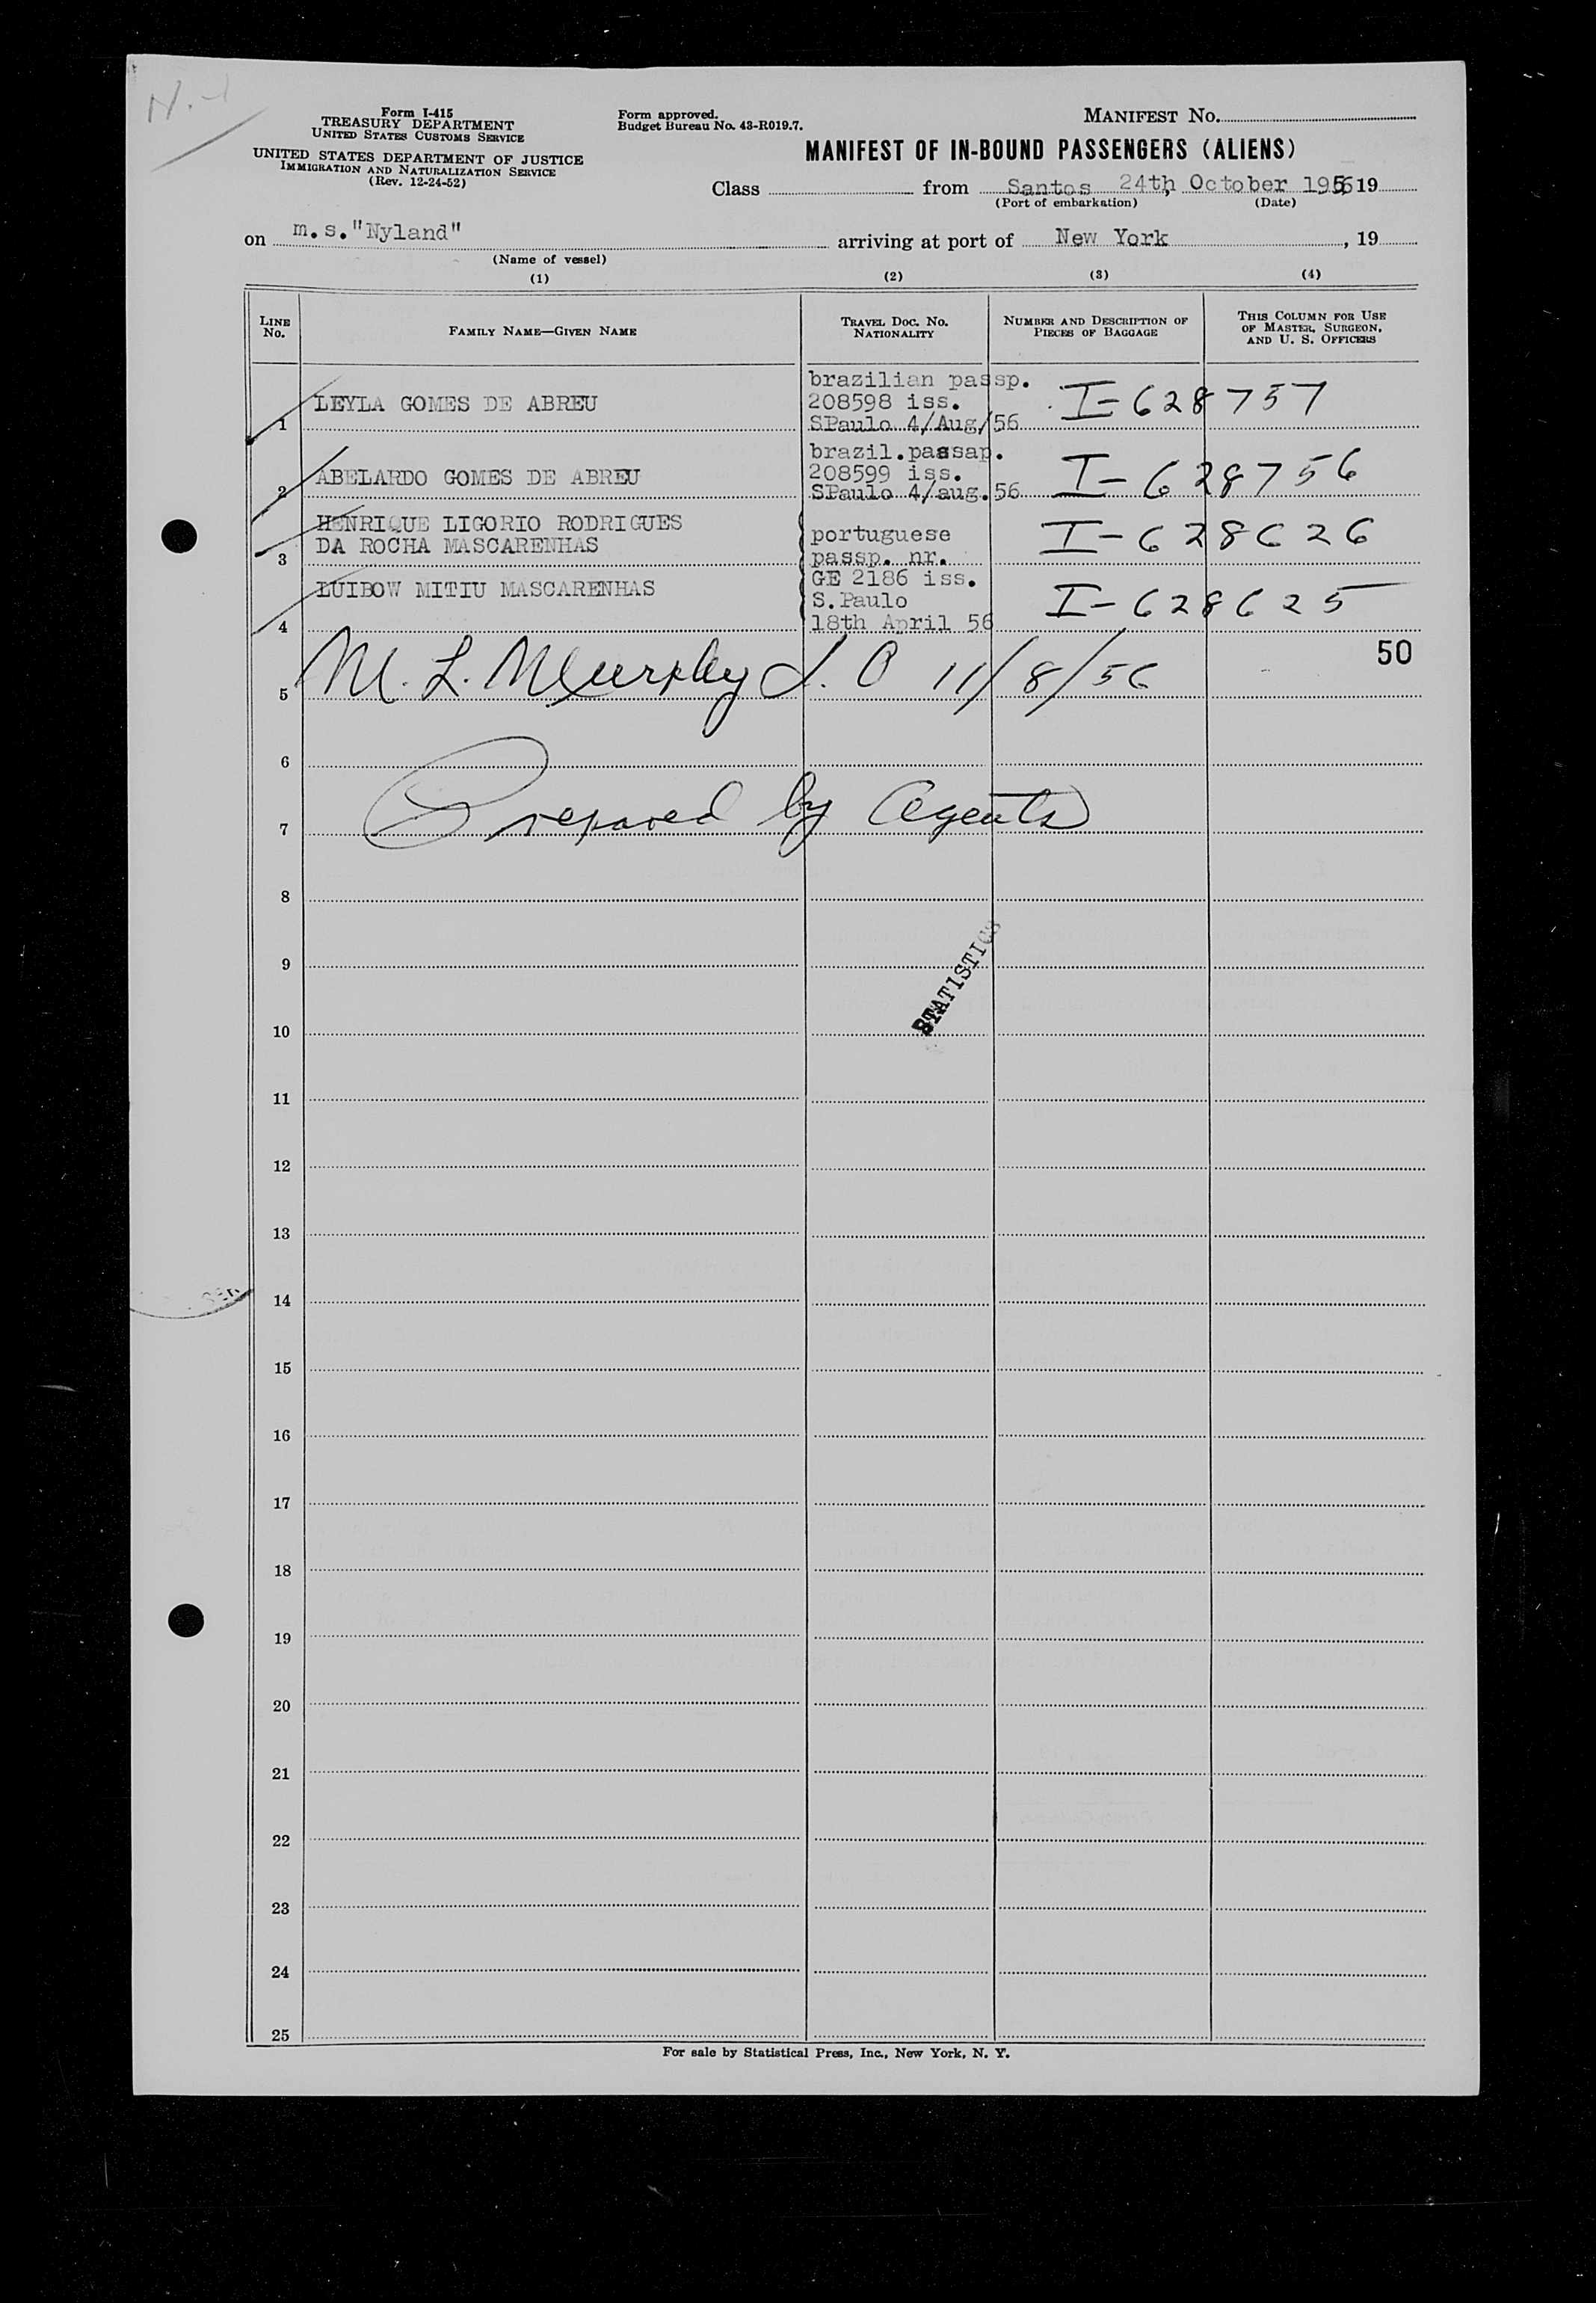 N.Y
Form I-415
TREASURY DEPARTMENT
UNITED STATES CUSTOMS SERVICE
UNITED STATES DEPARTMENT OF JUSTICE
IMMIGRATION AND NATURALIZATION SERVICE
(Rev. 12-24-52)
Form approved.
Budget Bureau No. 43-R019.7.
MANIFEST No.
MANIFEST OF IN-BOUND PASSENGERS (ALIENS)
Class from Santos 24th October 1956, 19
(Port of embarkation) (Date)
on m.s."Nyland" arriving at port of New York, 19
(Name of vessel)
(1) (2) (3) (4)
LINE No. FAMILY NAME—GIVEN NAME TRAVEL DOC. No. NATIONALITY NUMBER AND DESCRIPTION OF PIECES OF BAGGAGE THIS COLUMN FOR USE OF MASTER, SURGEON, AND U. S. OFFICERS
1 LEYLA GOMES DE ABREU brazilian passp. 208598 iss. SPaulo 4/Aug/56 I-628757
2 ABELARDO GOMES DE ABREU brazil.passap. 208599 iss. SPaulo 4/aug.56 I-628756
3 HENRIQUE LIGORIO RODRIGUES DA ROCHA MASCARENHAS portuguese passp. nr. I-628626
4 LUIBOW MITIU MASCARENHAS GE 2186 iss. S.Paulo 18th April 56 I-628625
50
5 M. L. Murphy I. O 11/8/56
6
7 Prepared by Agents
8
9
STATISTICS
10
11
12
13
14
15
16
17
18
19
20
21
22
23
24
25
For sale by Statistical Press, Inc., New York, N. Y.